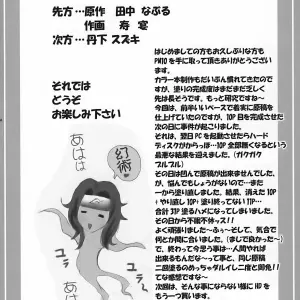 先方…原作 田中 なぷる
作画 寿 宴
次方…丹下 スズキ
それでは
どうぞ
お楽しみ下さい
はじめましての方もお久しぶりな方も
PMTOを手に取って頂きありがとうござい
ます。
カラー本制作もだいぶん慣れてきたので
すが、塗りの完成度はまだまだ乏しく
先は長そうです。もっと研究ですな〜
今回は、前半いいペースで着実に原稿を
仕上げていたのですが、10P目を完成させた
次の日に事件が起こりました。
それは、翌日PCを起動させたらハード
ディスクがからっぽ…10P全部無くなるという
最悪な結果を迎えました。(ガクガク
ブルブル)
その日は凹んで原稿が出来ませんでした
が、悩んでもしょうがないので…また
一から塗り直しました。結果、消えた10P
+やり直し10P+塗り終ってない11P…
合計31P塗るハメになってしまいました。
その日から不眠不休ッス!!
よく頑張りました〜ふぅ〜そして、気合で
何とか間に合いました。(まじで良かった〜)
で、終わって今思う事は…人間やれば
出来るもんだな〜って事と、同じ原稿
二回塗るのめっちゃダルイし二度と御免!!
てな感想です。
次回は、そんな事にならない様にHDを
もう一つ買います。
幻術
あはは
あはは
ユラ
ユラ